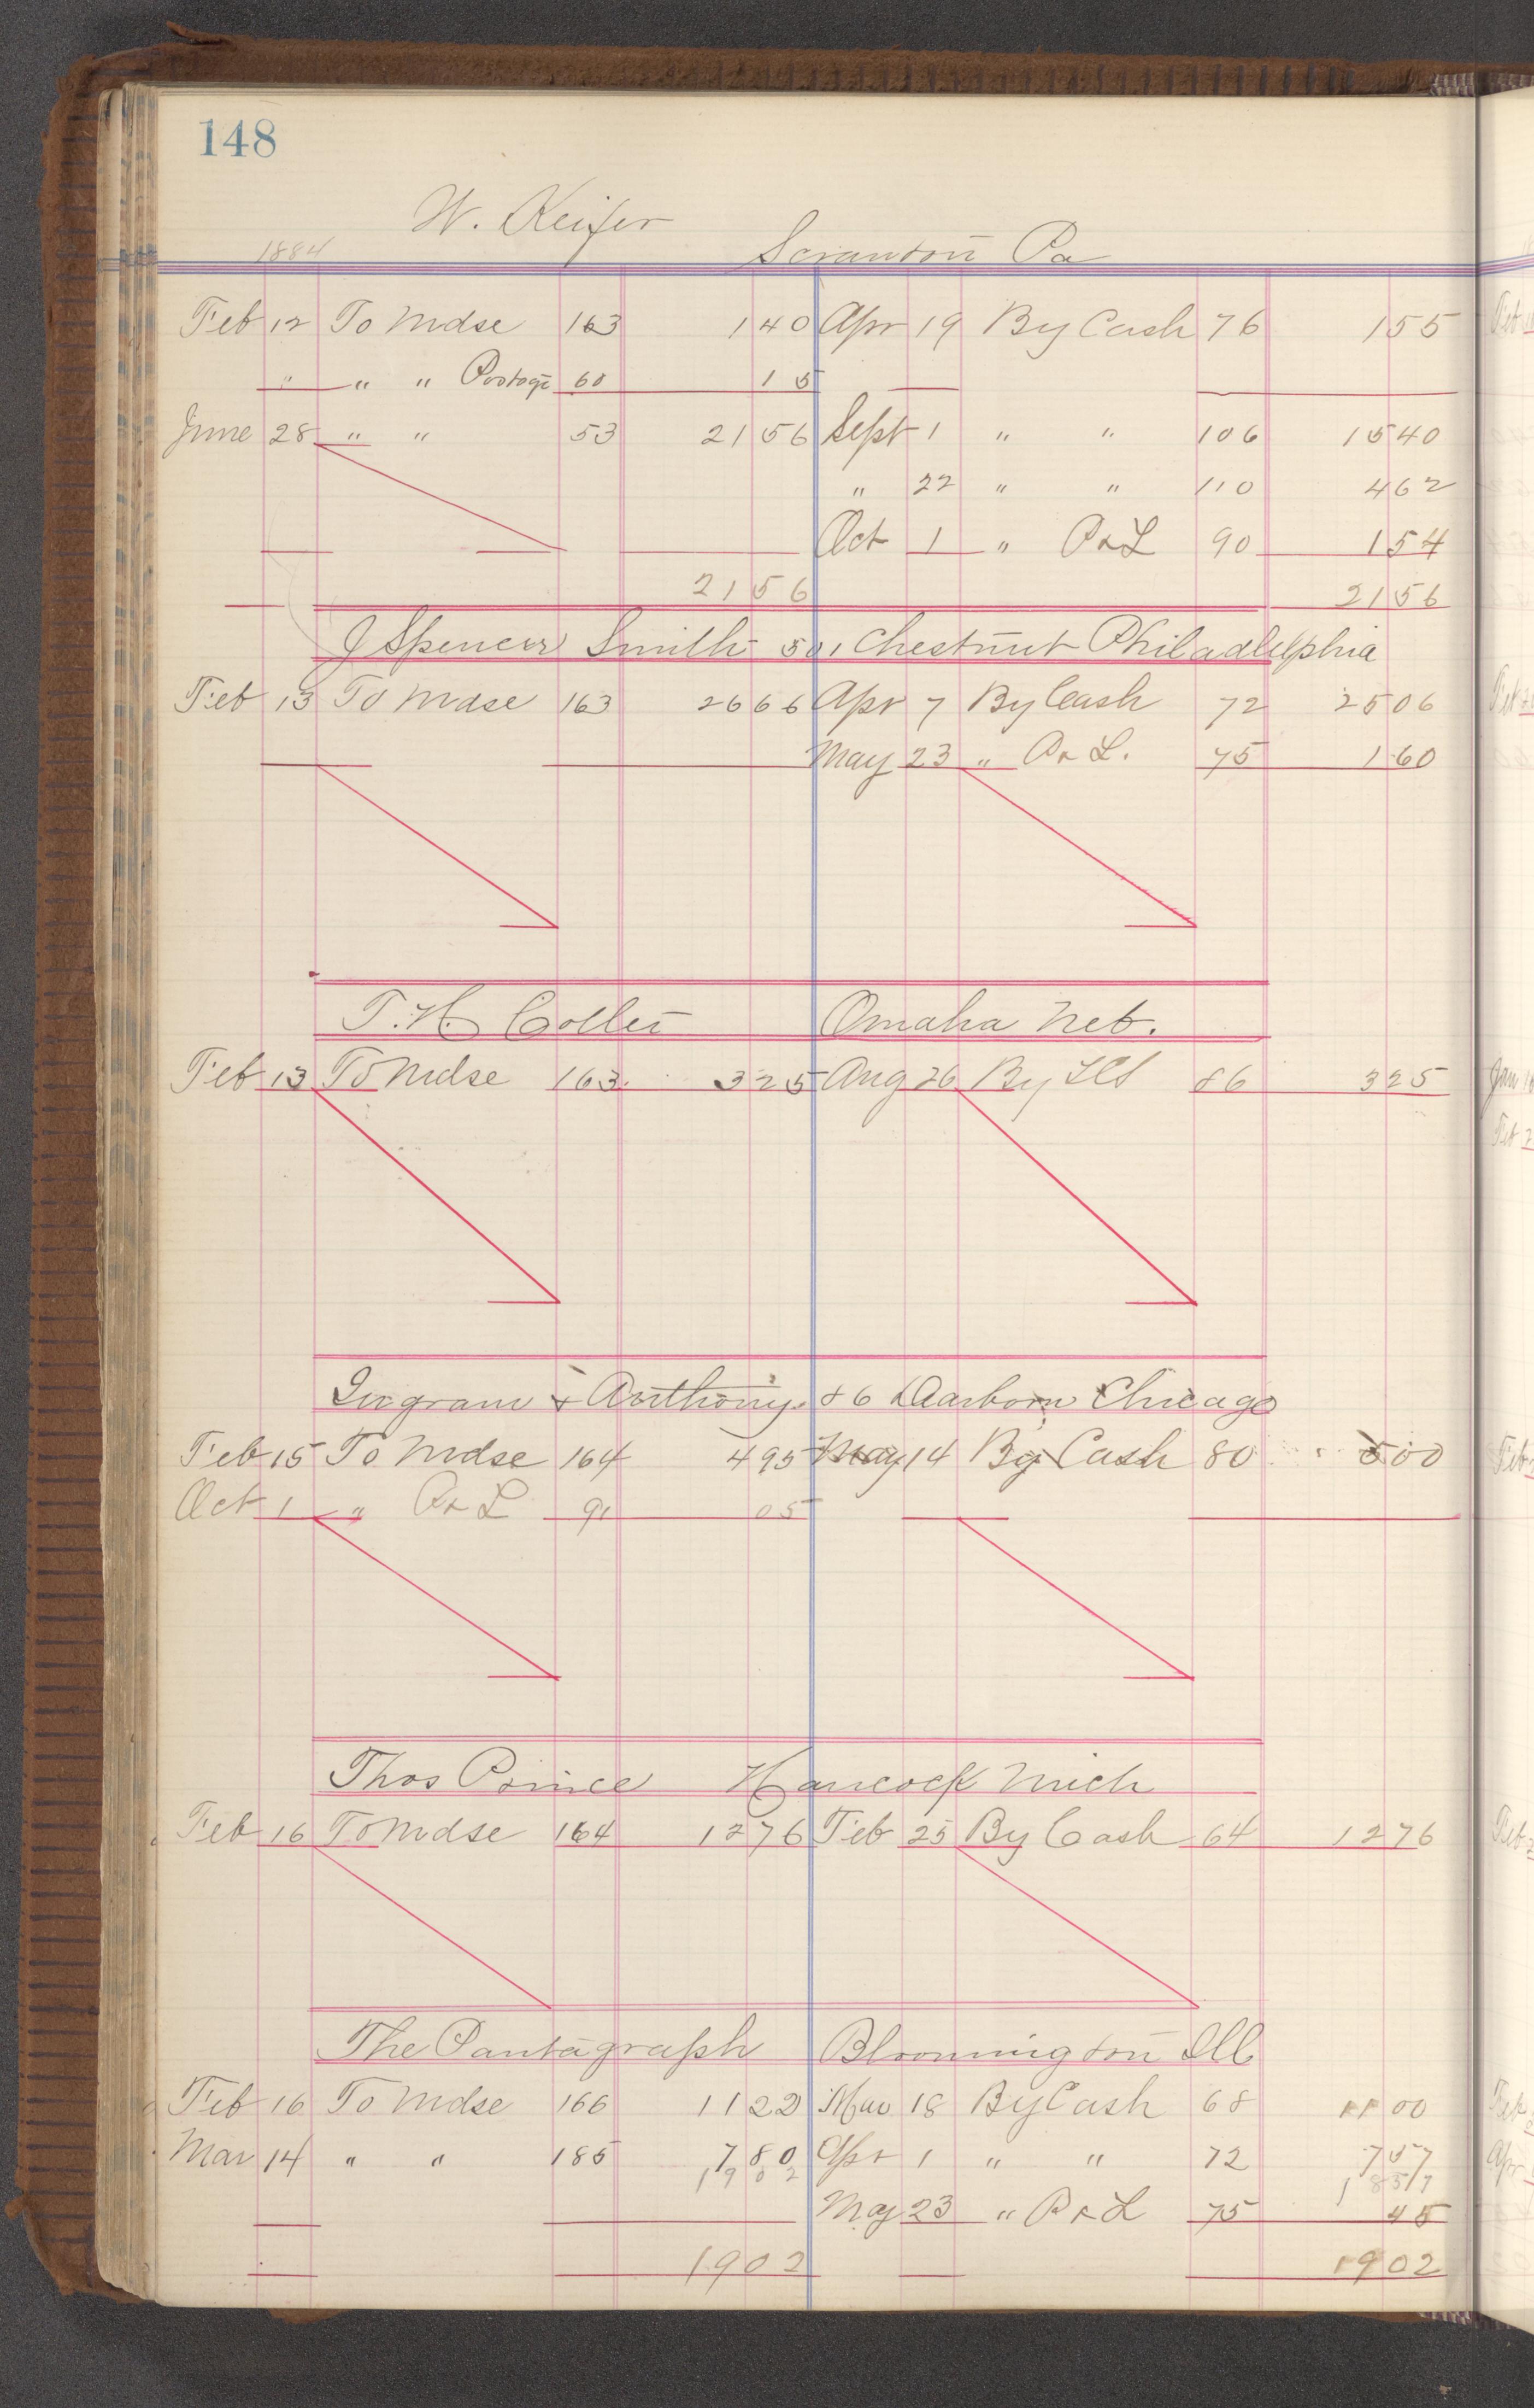 148
W. Keifer Scranton Pa
1884
Feb 12 To Mdse 163 1 40 Apr 19 By Cash 76 1 55
" " " Postage 60 15
June 28 " " 53 21 56 Sept 1 " " 106 15 40
" 22 " " 110 4 62
Oct 1 " P & L 90 1 54
21 56 21 56
J Spencer Smith 501 Chestnut Philadelphia
Feb 13 To Mdse 163 26 66 Apr 7 By Cash 72 25 06
May 23 " P & L. 75 1 60
T. H. Omaha Neb.
Feb 13 To Mdse 163 3 25 Aug 26 By 86 3 25
Ingram & Anthony 86 Dearborn Chicago
Feb 15 To Mdse 164 4 95 May 14 By Cash 80 5 00
Oct 1 " P & L 91 05
Thos Prince Hancock Mich
Feb 16 To Mdse 164 12 76 Feb 25 By Cash 64 12 76
The Pantagraph Bloomington Ill
Feb 16 To Mdse 166 11 22 Mar 18 By Cash 68 11 00
Mar 14 " " 185 7 80 Apr 1 " " 72 7 57
19 02 18 57
May 23 " P & L 75 45
19 02 19 02